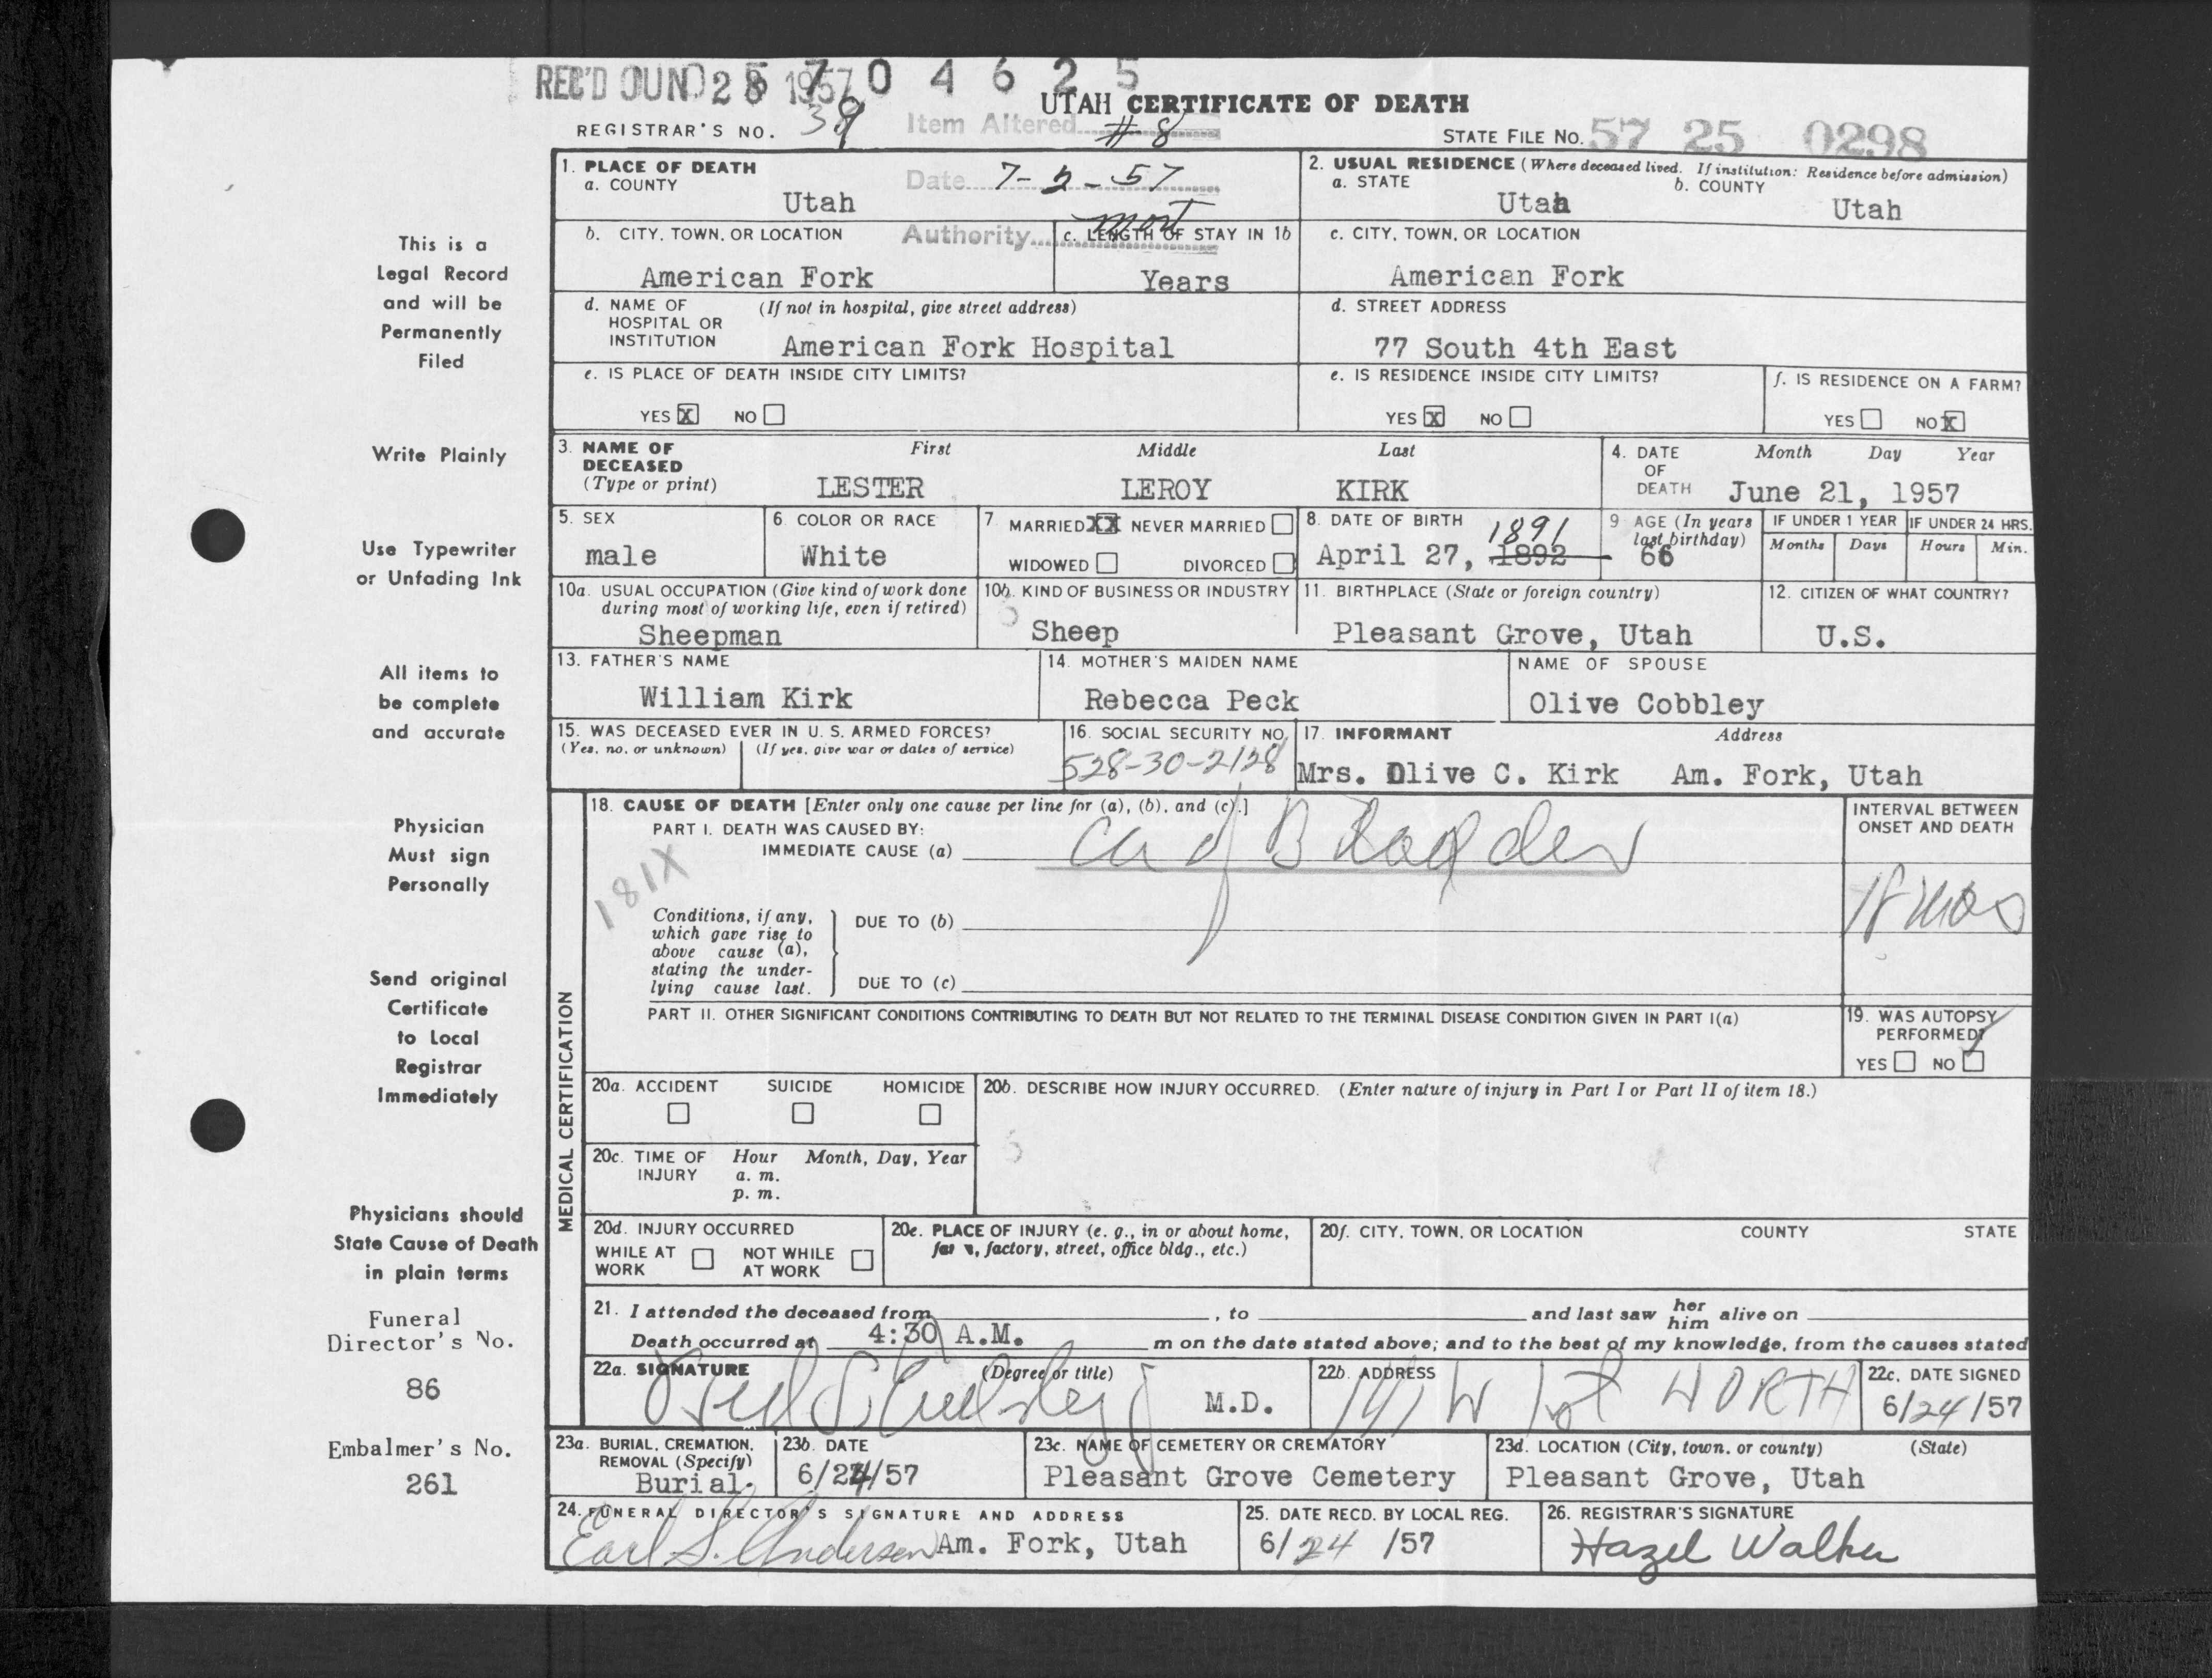 REC'D JUN 28 1957
5 7 0 4 6 2 5
UTAH CERTIFICATE OF DEATH
REGISTRAR'S NO. 39
Item Altered # 8
STATE FILE NO. 57 25 0298
1. PLACE OF DEATH
a. COUNTY
Utah
Date 7-2-57
2. USUAL RESIDENCE (Where deceased lived. If institution: Residence before admission)
a. STATE
Utah
b. COUNTY
Utah
b. CITY, TOWN, OR LOCATION
American Fork
Authority
c. LENGTH OF STAY IN 1b
Years
c. CITY, TOWN, OR LOCATION
American Fork
d. NAME OF HOSPITAL OR INSTITUTION
(If not in hospital, give street address)
American Fork Hospital
d. STREET ADDRESS
77 South 4th East
e. IS PLACE OF DEATH INSIDE CITY LIMITS?
YES X NO
e. IS RESIDENCE INSIDE CITY LIMITS?
YES X NO
f. IS RESIDENCE ON A FARM?
YES NO X
3. NAME OF DECEASED (Type or print)
First Middle Last
LESTER LEROY KIRK
4. DATE OF DEATH
Month Day Year
June 21, 1957
5. SEX
male
6. COLOR OR RACE
White
7. MARRIED XX NEVER MARRIED
WIDOWED DIVORCED
8. DATE OF BIRTH
1891
April 27, 1892
9. AGE (In years last birthday)
66
IF UNDER 1 YEAR
Months Days
IF UNDER 24 HRS.
Hours Min.
10a. USUAL OCCUPATION (Give kind of work done during most of working life, even if retired)
Sheepman
10b. KIND OF BUSINESS OR INDUSTRY
Sheep
11. BIRTHPLACE (State or foreign country)
Pleasant Grove, Utah
12. CITIZEN OF WHAT COUNTRY?
U.S.
13. FATHER'S NAME
William Kirk
14. MOTHER'S MAIDEN NAME
Rebecca Peck
NAME OF SPOUSE
Olive Cobbley
15. WAS DECEASED EVER IN U. S. ARMED FORCES?
(Yes, no, or unknown) (If yes, give war or dates of service)
16. SOCIAL SECURITY NO.
528-30-2128
17. INFORMANT Address
Mrs. Olive C. Kirk Am. Fork, Utah
MEDICAL CERTIFICATION
18. CAUSE OF DEATH [Enter only one cause per line for (a), (b), and (c).]
PART I. DEATH WAS CAUSED BY:
IMMEDIATE CAUSE (a) Ca of Bladder
181X
Conditions, if any, which gave rise to above cause (a), stating the underlying cause last.
DUE TO (b)
DUE TO (c)
INTERVAL BETWEEN ONSET AND DEATH
18 mos
PART II. OTHER SIGNIFICANT CONDITIONS CONTRIBUTING TO DEATH BUT NOT RELATED TO THE TERMINAL DISEASE CONDITION GIVEN IN PART I(a)
19. WAS AUTOPSY PERFORMED?
YES NO
20a. ACCIDENT SUICIDE HOMICIDE
20b. DESCRIBE HOW INJURY OCCURRED. (Enter nature of injury in Part I or Part II of item 18.)
20c. TIME OF INJURY
Hour Month, Day, Year
a. m.
p. m.
20d. INJURY OCCURRED
WHILE AT WORK NOT WHILE AT WORK
20e. PLACE OF INJURY (e. g., in or about home, farm, factory, street, office bldg., etc.)
20f. CITY, TOWN, OR LOCATION COUNTY STATE
21. I attended the deceased from , to and last saw her him alive on
Death occurred at 4:30 A.M. m on the date stated above; and to the best of my knowledge, from the causes stated
22a. SIGNATURE (Degree or title)
M.D.
22b. ADDRESS
141 W 1st NORTH
22c. DATE SIGNED
6/24/57
23a. BURIAL, CREMATION, REMOVAL (Specify)
Burial.
23b. DATE
6/24/57
23c. NAME OF CEMETERY OR CREMATORY
Pleasant Grove Cemetery
23d. LOCATION (City, town, or county) (State)
Pleasant Grove, Utah
24. FUNERAL DIRECTOR'S SIGNATURE AND ADDRESS
Earl S. Anderson Am. Fork, Utah
25. DATE RECD. BY LOCAL REG.
6/24/57
26. REGISTRAR'S SIGNATURE
Hazel Walker
This is a
Legal Record
and will be
Permanently
Filed
Write Plainly
Use Typewriter
or Unfading Ink
All items to
be complete
and accurate
Physician
Must sign
Personally
Send original
Certificate
to Local
Registrar
Immediately
Physicians should
State Cause of Death
in plain terms
Funeral
Director's No.
86
Embalmer's No.
261